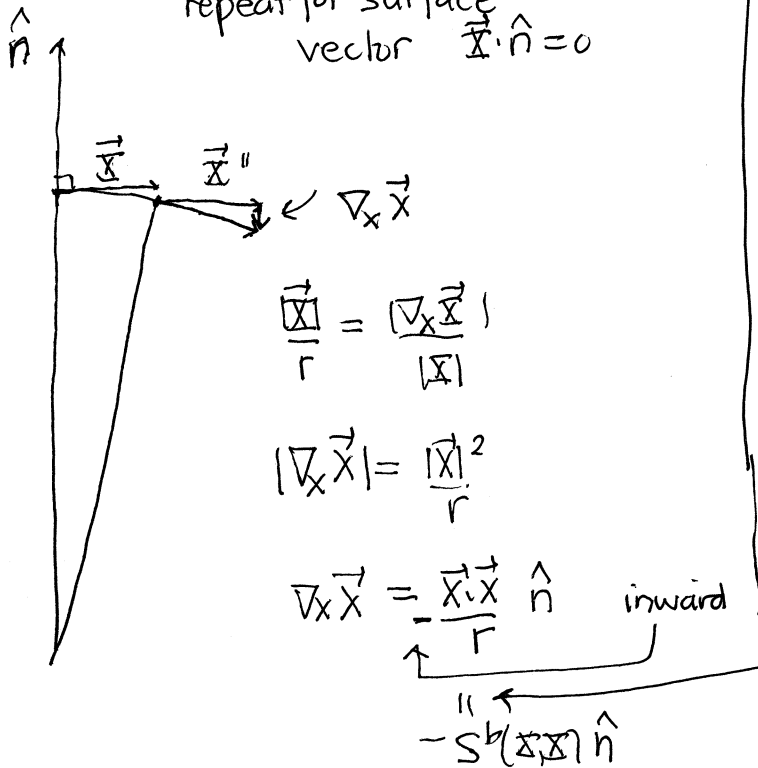 repeat for surface
n̂ vector X⃗·n̂ = 0
X⃗ X⃗ ∥
∇ₓ X⃗
|X⃗|/r = |∇ₓX⃗|/|X|
|∇ₓX⃗| = |X⃗|²/r
∇ₓX⃗ = -X⃗·X⃗/r n̂ inward
∥
-S♭(X,X) n̂